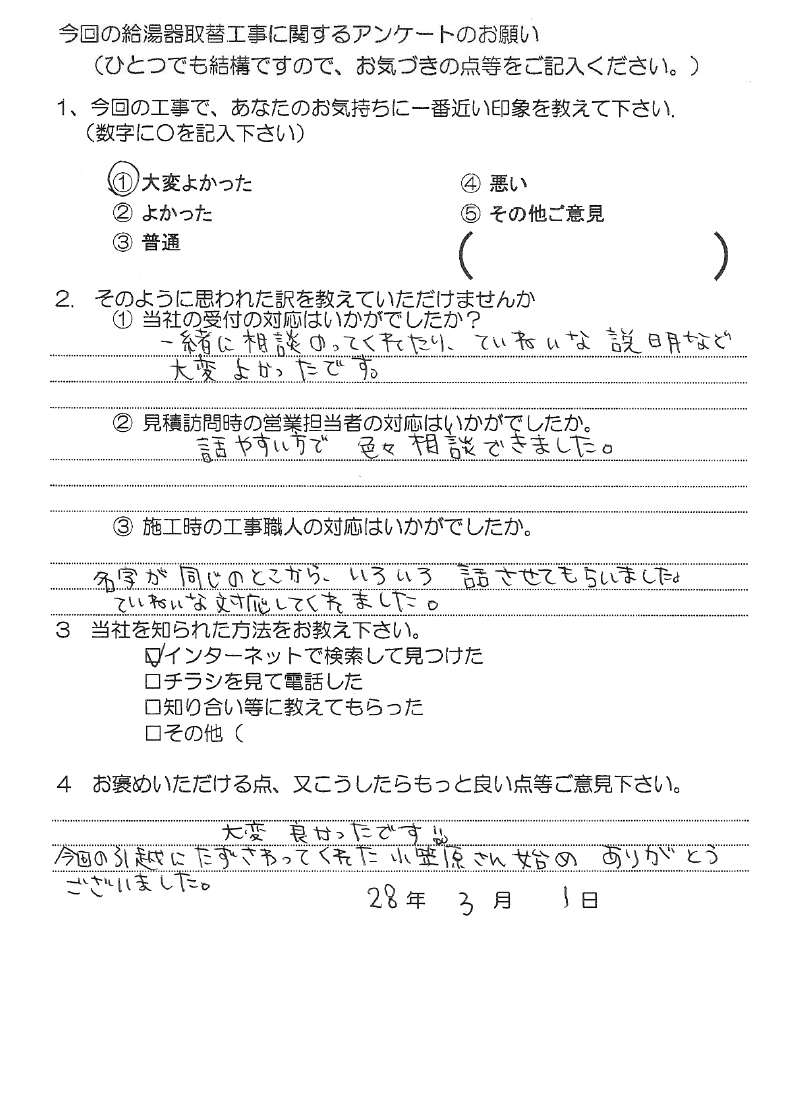 今回の給湯器取替工事に関するアンケートのお願い
（ひとつでも結構ですので、お気づきの点等をご記入ください。）
1、今回の工事で、あなたのお気持ちに一番近い印象を教えて下さい.
（数字に○を記入下さい）
① 大変よかった
② よかった
③ 普通
④ 悪い
⑤ その他ご意見
（ ）
2. そのように思われた訳を教えていただけませんか
① 当社の受付の対応はいかがでしたか？
一緒に相談のってくれたり、ていねいな説明など
大変よかったです。
② 見積訪問時の営業担当者の対応はいかがでしたか。
話やすい方で 色々相談できました。
③ 施工時の工事職人の対応はいかがでしたか。
名字が同じのとこから、いろいろ 話させてもらいました。
ていねいな対応してくれました。
3 当社を知られた方法をお教え下さい。
☑インターネットで検索して見つけた
□チラシを見て電話した
□知り合い等に教えてもらった
□その他（
4 お褒めいただける点、又こうしたらもっと良い点等ご意見下さい。
大変 良かったです!!
今回の引越にたずさわってくれた小笠原さん始め ありがとう
ございました。
28年 3月 1日